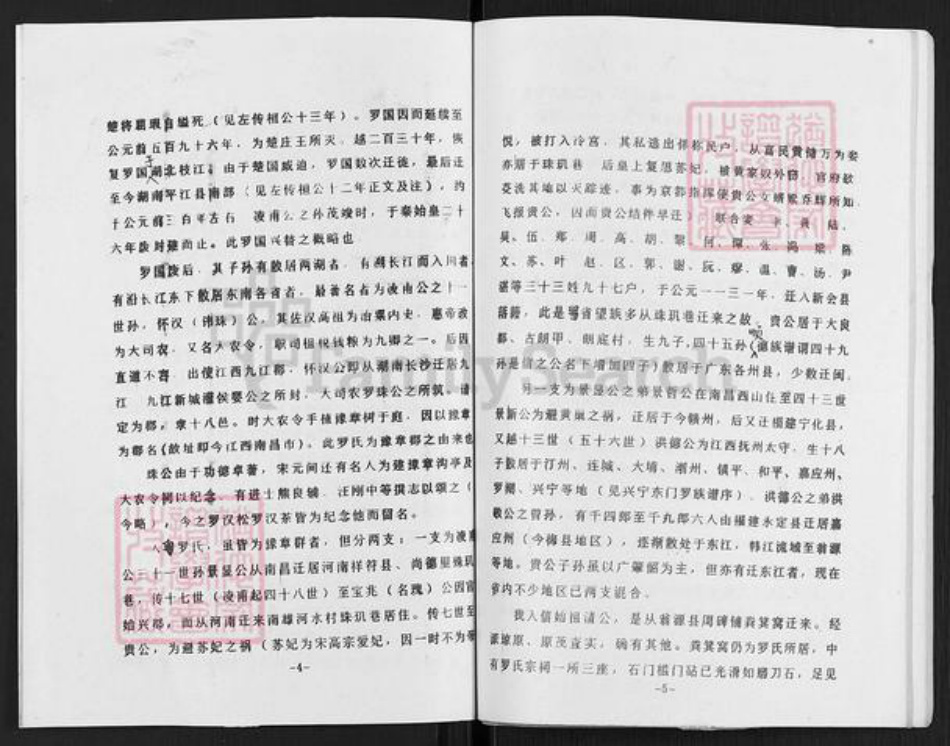 楚将屈瑕自缢死（见左传桓公十三年）。罗国因而延续至
公元前五百九十六年，为楚庄王所灭。越二百三十年，恢
复罗国湖北枝江，由于楚国威迫，罗国数次迁徙，最后迁
至今湖南平江县南部（见左传桓公十二年正文及注），约
于公元前三百年左右 凌甫公之孙茂竣时，于秦始皇二十
六年 而止。此罗国兴替之概略也
罗国 后，其子孙有散居两湖者，有溯长江而入川者
有沿长江东下散居东南各省者，最著名者为凌甫公之十一
世孙，怀汉（讳珠）公，其佐汉高祖为治粟内史，惠帝改
为大司农，又名大农令，职司租税钱粮为九卿之一。后因
直道不容，出使江西九江郡，怀汉公即从湖南长沙迁居九
江 九江新城灌侯婴公之所封，大司农罗珠公之所筑，请
定为郡，拿十八邑。时大农令手植豫章树于庭，因以豫章
为郡名（故址即今江西南昌市）。此罗氏为豫章郡之由来也
珠公由于功德卓著，宋元间迁有名人为建豫章沟亭及
大农令祠以纪念 有进士熊良辅，汪刚中等撰志以颂之（
今略），今之罗汉松罗汉茶皆为纪念他而留名。
罗氏，虽皆为豫章群者，但分两支：一支为凌甫
公二十一世孙景显公从南昌迁居河南祥符县、尚德里珠玑
巷，传十七世（凌甫起四十八世）至宝兆（名瑰）公因宦
始兴郡，而从河南迁来南雄河水村珠玑巷居住。传七世至
贵公，为避苏妃之祸（苏妃为宋高宗爱妃，因一时不为帝
-4-
悦，被打入冷宫，其私逃出伴称民户，从富民黄储万为妾
亦居于珠玑巷 后皇上复思苏妃，被黄家奴外
其地以灭踪迹，事为京都指挥使贵公女婿 乔辉所知
飞报贵公，因而贵公结伴早迁） 联合 黄 陆
吴、伍、郑、周、高、胡、黎 何 冯 梁 陈
文、苏、叶 赵、区、郭、谢、阮、廖、温、曹、汤、尹
湛等三十三姓九十七户，于公元一一三一年，迁入新会县
落籍，此是粤省望族多从珠玑巷迁来之故。贵公居于大良
都、古朗甲、朗底村，生九子，四十五孙（ 德族谱谓四十九
孙是 之公名下增加四子）散居于广东各州县，少数迁闽。
另一支为景显公之弟景哲公在南昌西山住至四十三世
景新公为避黄巢之祸，迁居于今赣州，后又迁福建宁化县，
又越十三世（五十六世）洪德公为江西抚州太守，生十八
子散居于汀州、连城、大埔、潮州、镇平、和平、嘉应州、
罗 、兴宁等地（见兴宁东门罗族谱序）。洪德公之弟洪
敬公之曾孙，有千四郎至千九郎六人由福建永定县迁居嘉
应州（今梅县地区），逐渐散处于东江，韩江流域至翁源
等地。贵公子孙虽以广肇韶为主，但亦有迁东江者，现在
省内不少地区已两支混合。
我人信始祖清公，是从翁源县周碑铺粪箕窝迁来。经
派 原、原茂查实，确有其他。粪箕窝仍为罗氏所居，中
有罗氏宗祠一所三座，石门槛门跕已光滑如磨刀石，足见
-5-
FamilySearch